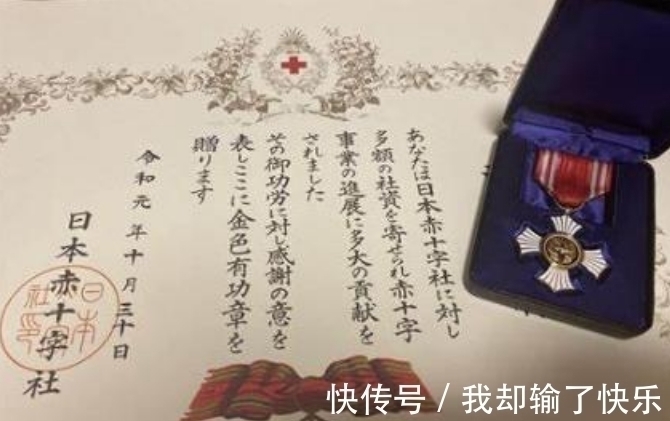 あなたは日本赤十字社に対し
多額の社資を寄せられ赤十字
事業の進展に多大の貢献を
されました
その御功労に対し感謝の意を
表しここに金色有功章を
贈ります
令和元年十月三十日
日本赤十字社
快传号 / 我却输了快乐